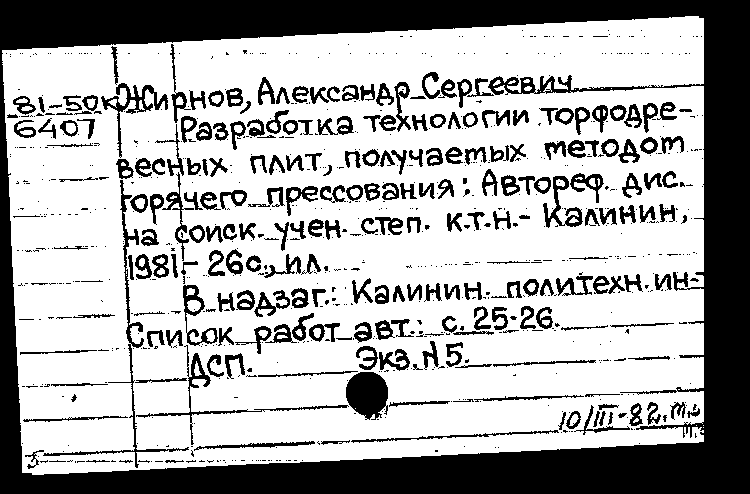 81-50к Жирнов, Александр Сергеевич
6407 Разработка технологии торфодре-
весных плит, получаемых методом
горячего прессования: Автореф. дис.
на соиск. учен. степ. к.т.н.- Калинин,
1981.- 26с., ил.
В надзаг.: Калинин. политехн. ин-т
Список работ авт.: с. 25-26.
ДСП. Экз. N 5.
10/III-82.